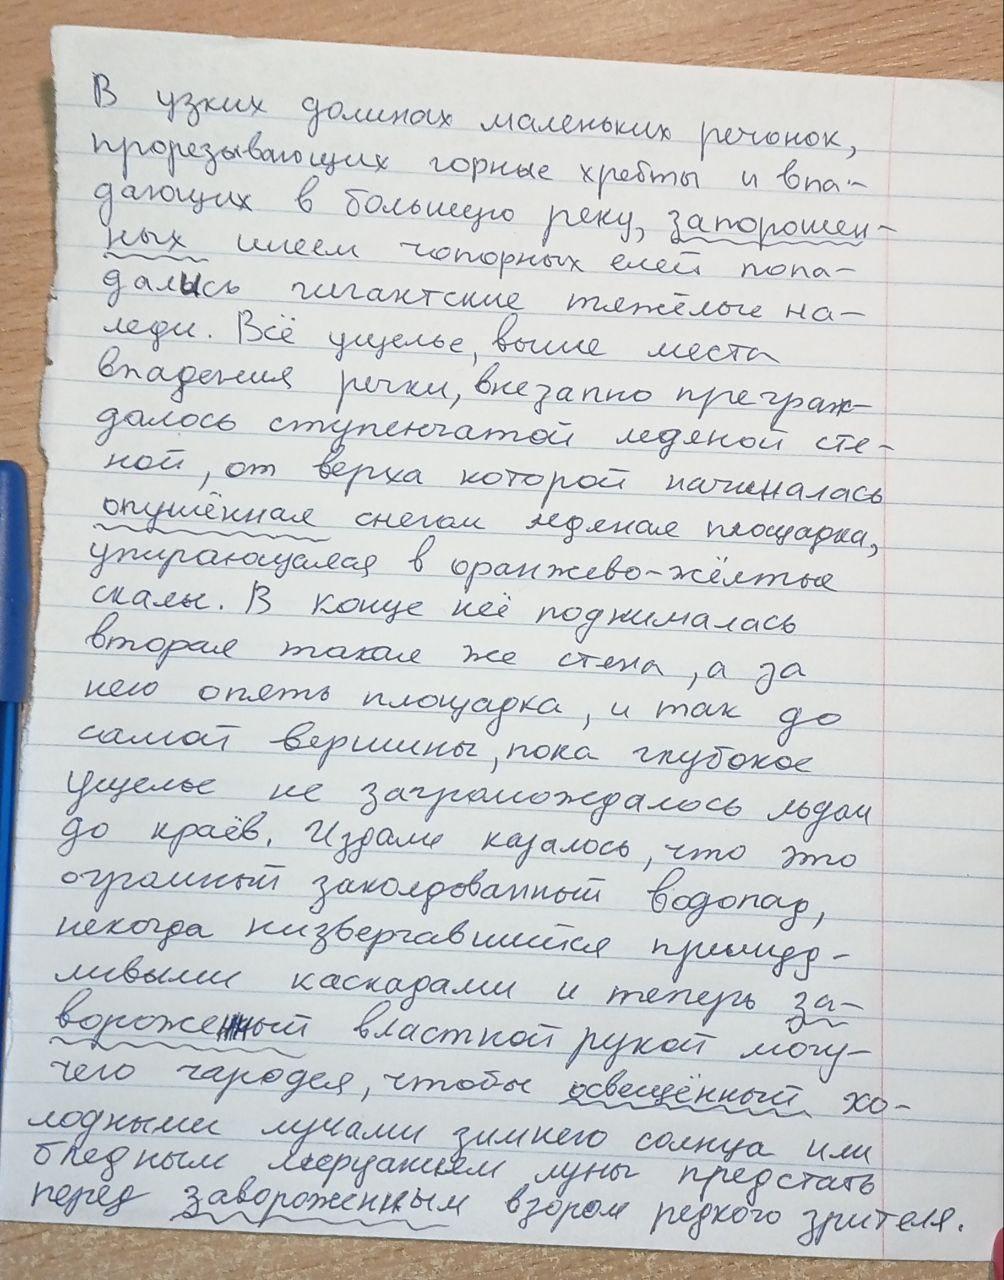 В узких долинах маленьких речонок,
прорезывающих горные хребты и впа-
дающих в большую реку, запорошен-
ных инеем чопорных елей попа-
дались гигантские тяжёлые на-
леди. Всё ущелье, выше места
впадения речки, внезапно преграж-
далось ступенчатой ледяной сте-
ной, от верха которой начиналась
опушённая снегом ледяная площадка,
упирающаяся в оранжево-жёлтые
скалы. В конце неё поднималась
вторая такая же стена, а за
нею опять площадка, и так до
самой вершины, пока глубокое
ущелье не загромождалось льдом
до краёв. Издали казалось, что это
огромный заколдованный водопад,
некогда низвергавшийся причудд-
ливыми каскадами и теперь за-
вороженный властной рукой могу-
чего чародея, чтобы освещённый хо-
лодными лучами зимнего солнца или
бледным мерцанием луны предстать
перед завороженным взором редкого зрителя.